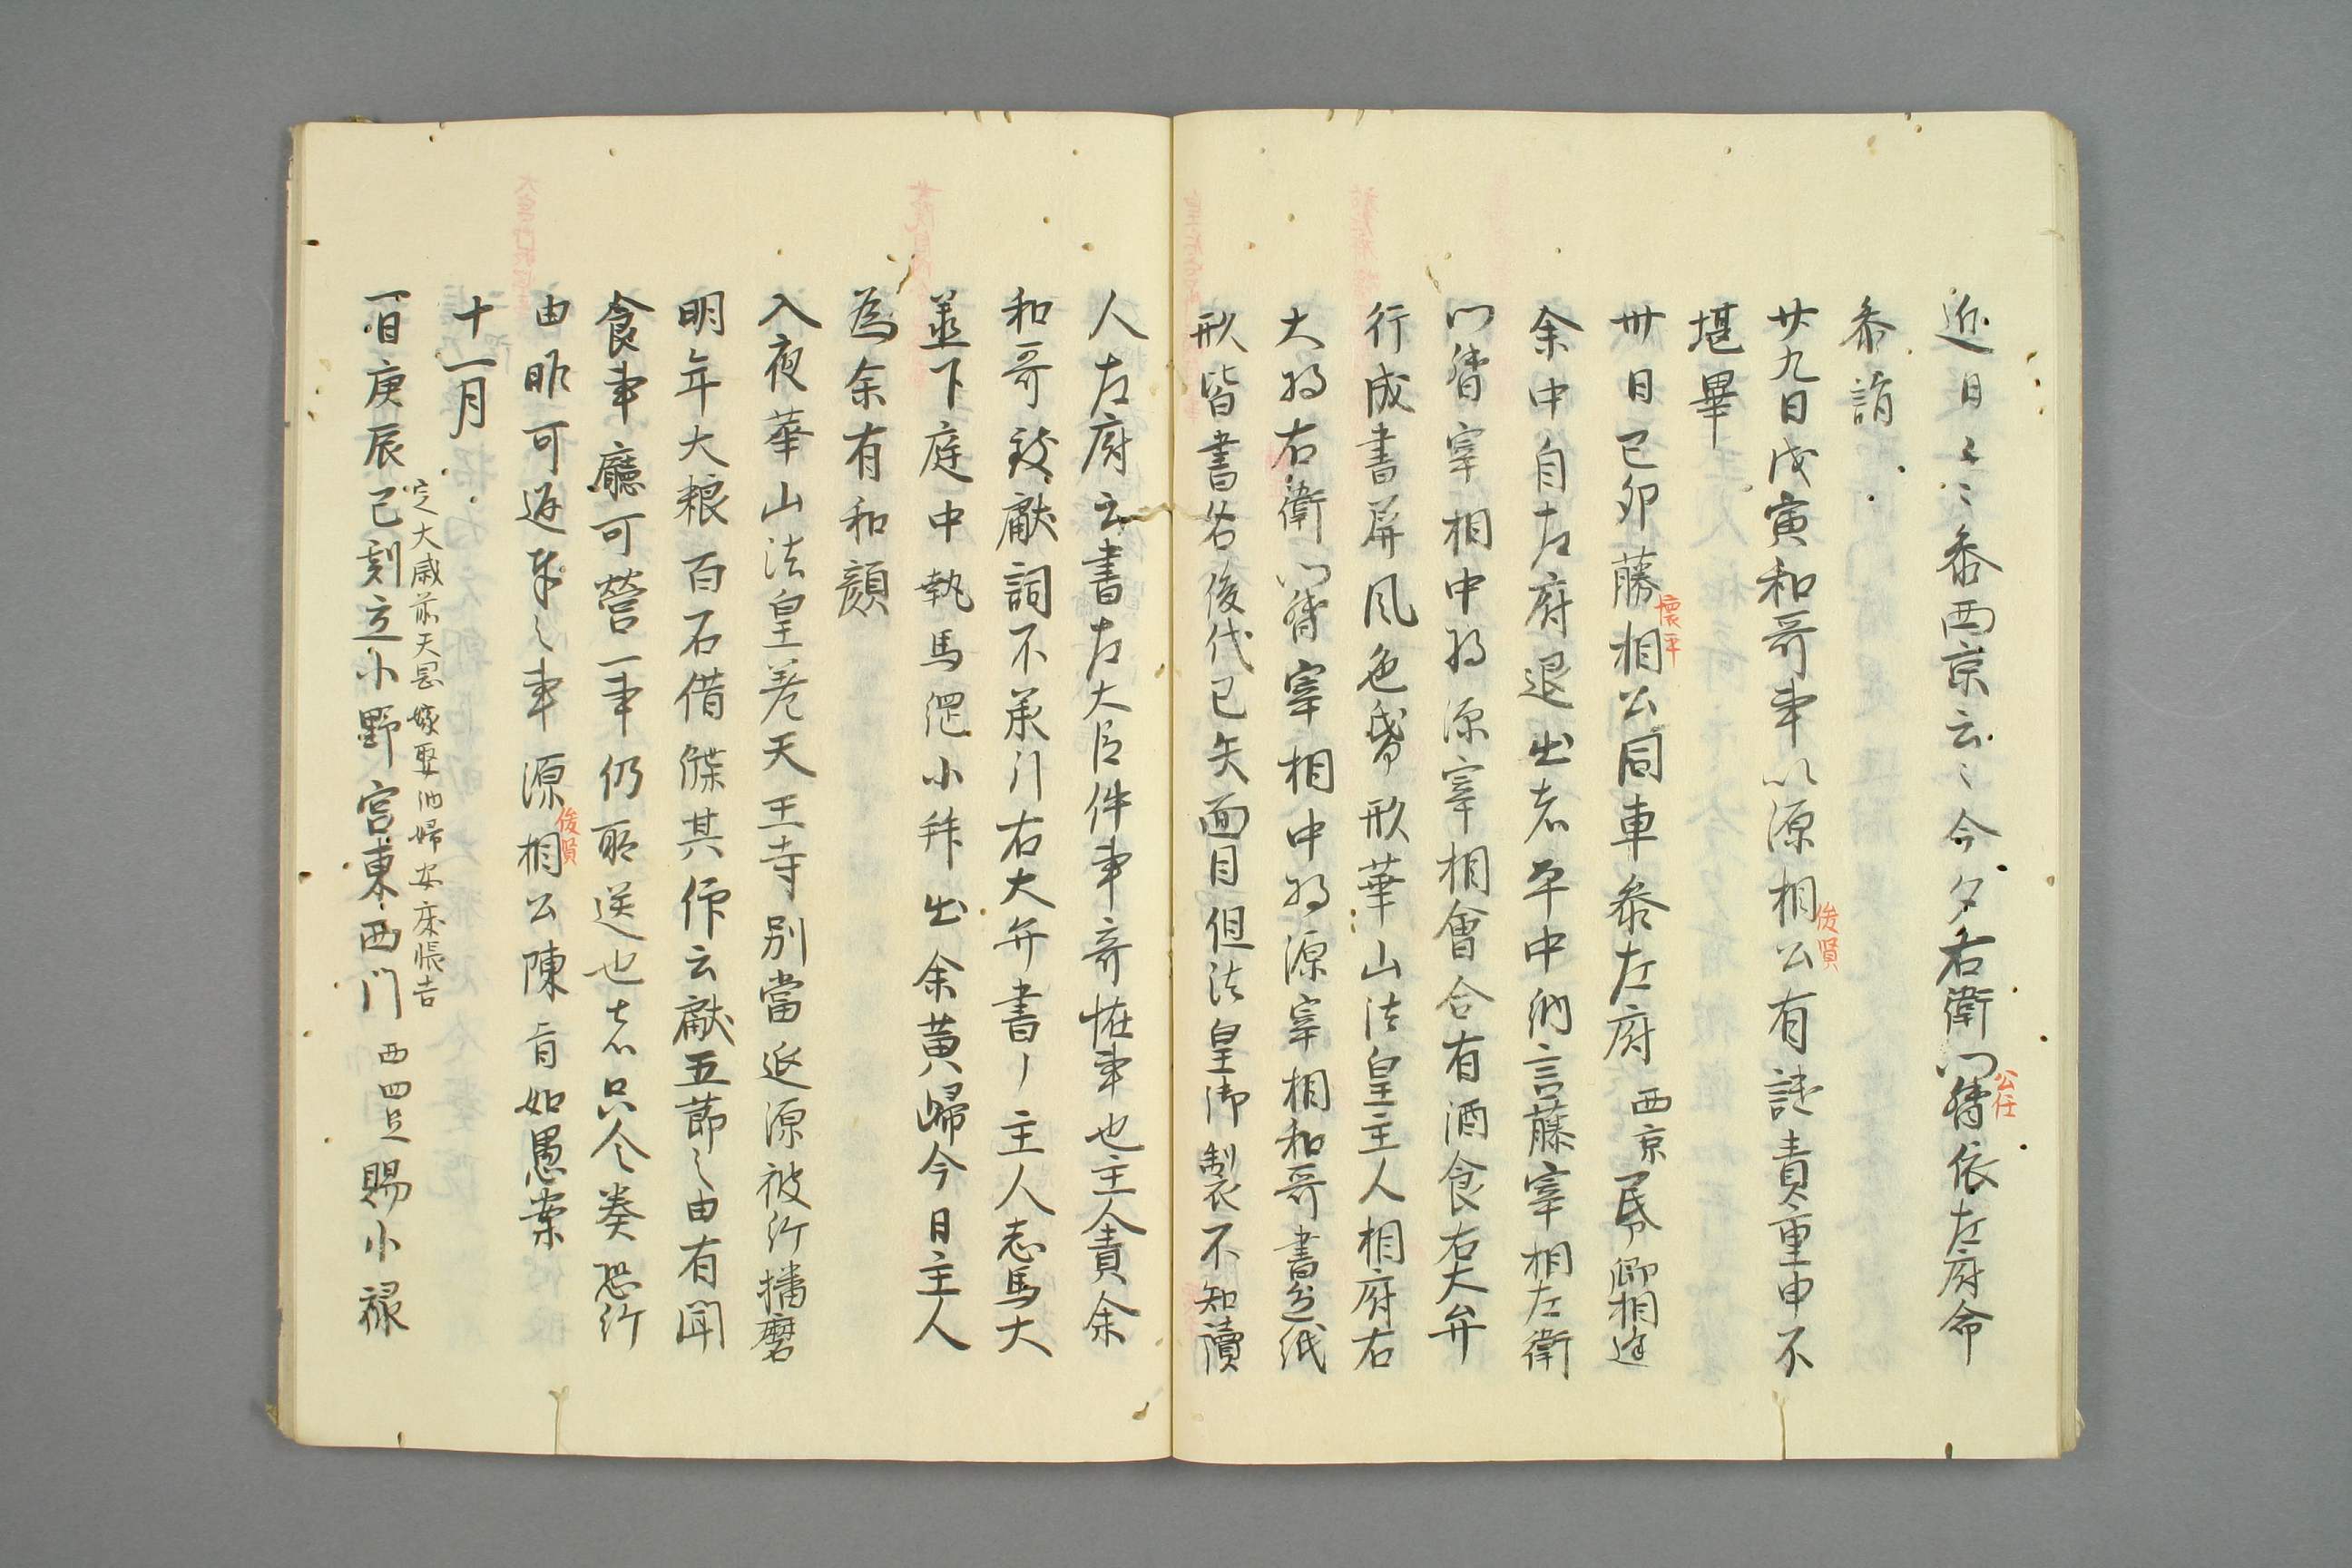 近日々々参西京云々今夕右衛門督依左府命
公任
参詣
廿九日戊寅和哥事以源相公有譴責重申不
俊賢
堪畢
卅日己卯藤相公同車参左府西京昏卿相逢
懐平
余中自左府退出者平中納言藤宰相左衛
門督宰相中将源宰相會合有酒食右大弁
行成書屏風色帋形華山法皇主人相府右
大将右衛門督宰相中将源宰相和哥書色紙
形皆書名後代已失面目但法皇御製不知讀
人左府云書左大臣件事奇恠事也主人責余
和哥致献詞不承引右大弁書了主人志馬大
並下庭中執馬𦆯小拜出余黄歸今日主人
為余有和顔
入夜華山法皇差天王寺別當返源被行播磨
明年大粮百石借牒其作云献五節之由有聞
食事廳可營一事仍所送也者只令奏恐行
由昨可返奉之事源相公陳旨如愚案
俊賢
十一月
定大歳前天恩嫁娶納婦安床帳吉
一日庚辰巳刻立小野宮東西門西四足賜小禄